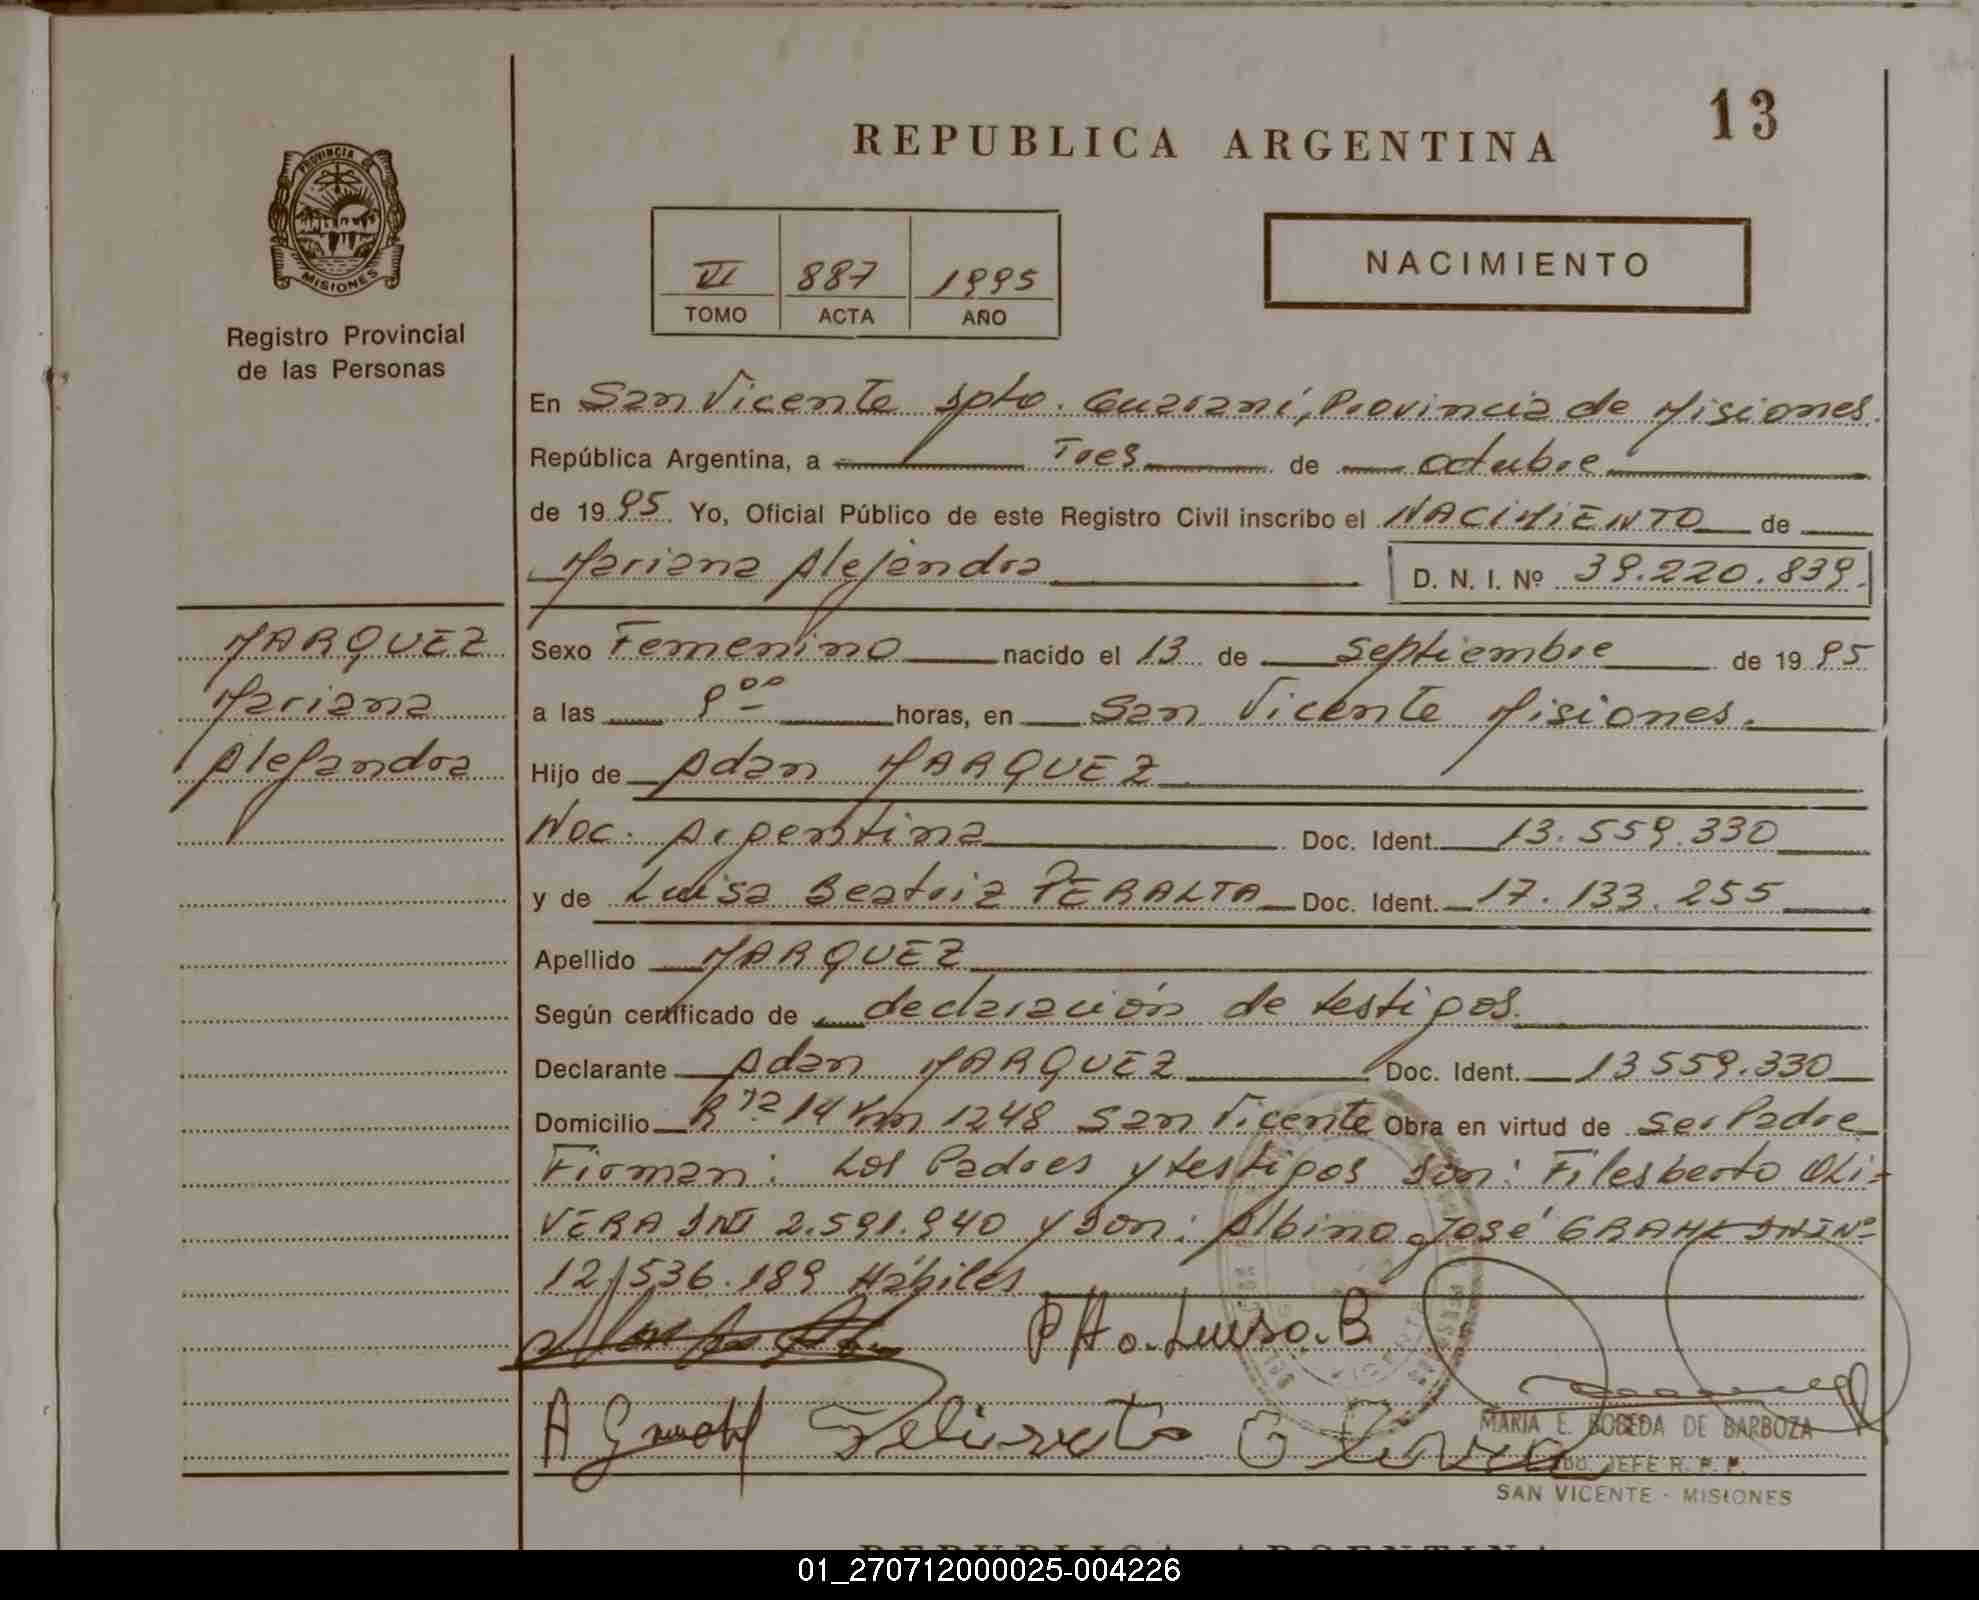 13
REPUBLICA ARGENTINA
PROVINCIA DE
MISIONES
Registro Provincial
de las Personas
VI 887 1995
TOMO ACTA AÑO
NACIMIENTO
En San Vicente Dpto. Guaraní, Provincia de Misiones.
República Argentina, a Tres de octubre
de 1995 Yo, Oficial Público de este Registro Civil inscribo el NACIMIENTO de
Mariana Alejandra D. N. I. Nº 39.220.839.
MARQUEZ
Mariana
Alejandra
Sexo Femenino nacido el 13 de Septiembre de 1995
a las 9 00 horas, en San Vicente Misiones.
Hijo de Adan MARQUEZ
Nac. Argentina Doc. Ident. 13.559.330
y de Luisa Beatriz PERALTA Doc. Ident. 17.133.255
Apellido MARQUEZ
Según certificado de declaración de testigos.
Declarante Adan MARQUEZ Doc. Ident. 13559.330
Domicilio R 14 Km 1248 San Vicente Obra en virtud de ser Padre
Firman: Los Padres y testigos son: Filesberto OLI-
VERA DNI 2.591.940 y Don: Albino José DNI Nº
12.536.189 Hábiles
Luisa. B
MARIA E. BOBEDA DE BARBOZA
JEFE R. P. P.
SAN VICENTE - MISIONES
REPUBLICA ARGENTINA
01_270712000025-004226